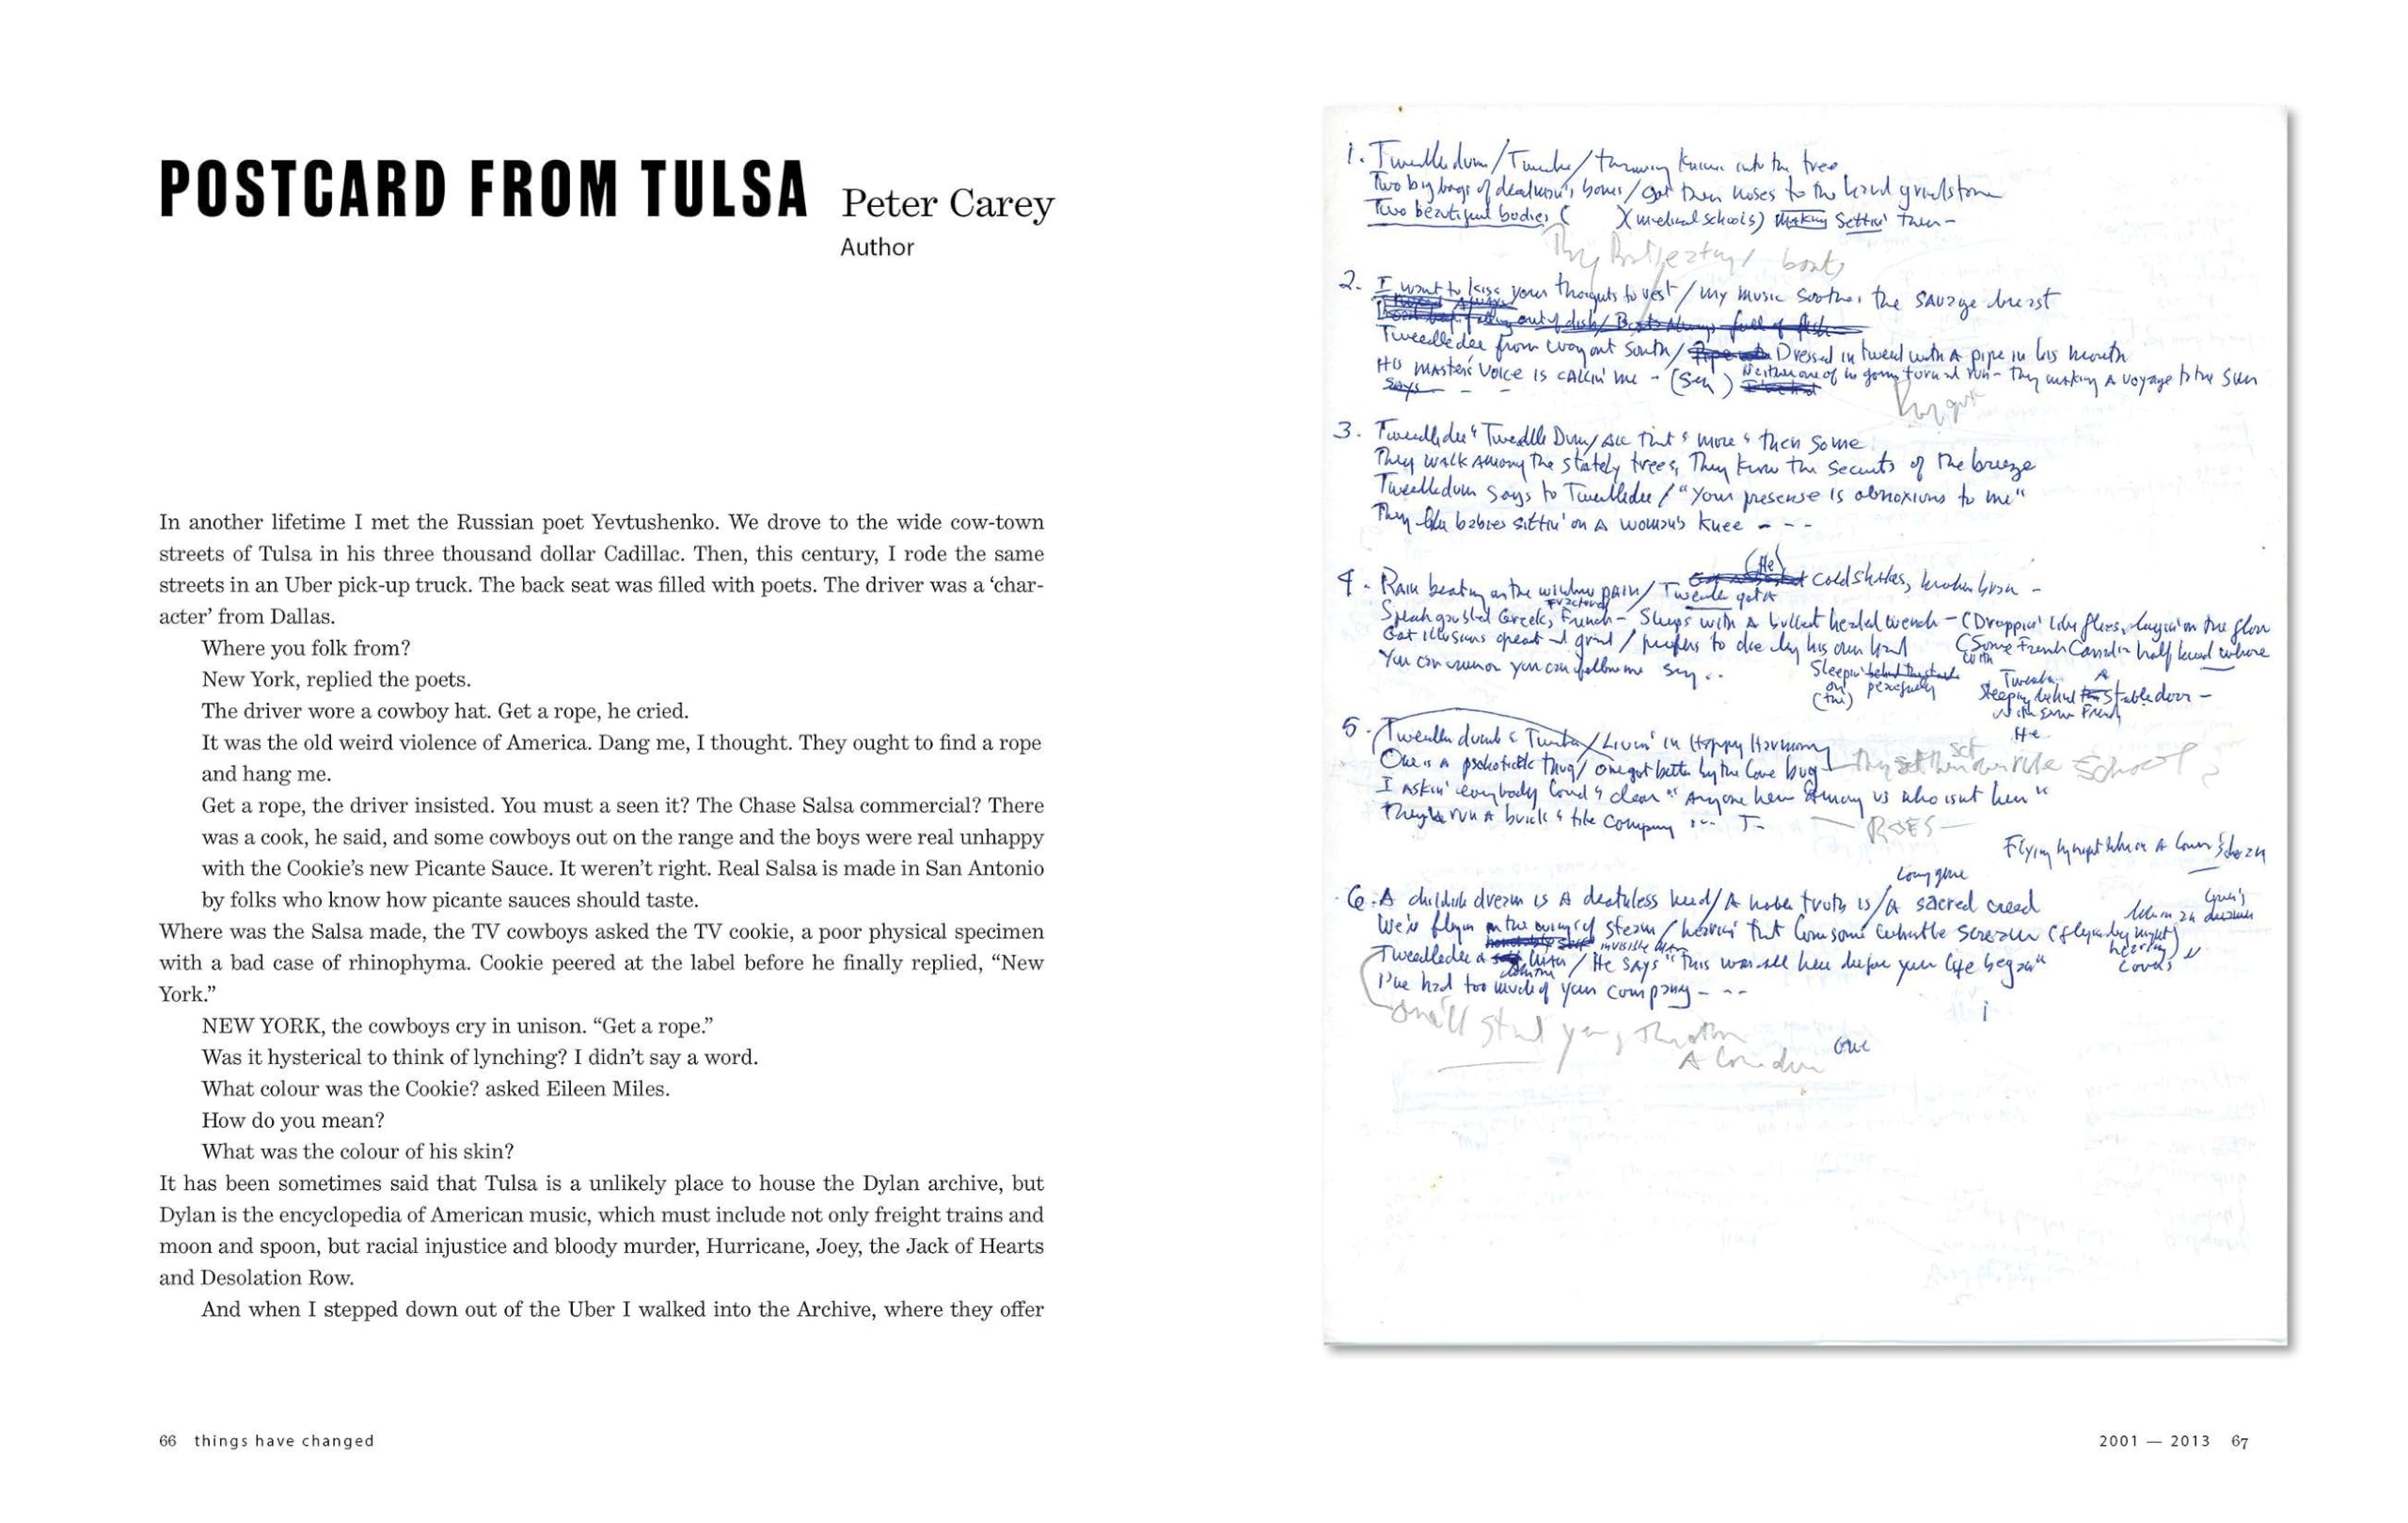 POSTCARD FROM TULSA Peter Carey
Author
In another lifetime I met the Russian poet Yevtushenko. We drove to the wide cow-town
streets of Tulsa in his three thousand dollar Cadillac. Then, this century, I rode the same
streets in an Uber pick-up truck. The back seat was filled with poets. The driver was a ‘char-
acter’ from Dallas.
Where you folk from?
New York, replied the poets.
The driver wore a cowboy hat. Get a rope, he cried.
It was the old weird violence of America. Dang me, I thought. They ought to find a rope
and hang me.
Get a rope, the driver insisted. You must a seen it? The Chase Salsa commercial? There
was a cook, he said, and some cowboys out on the range and the boys were real unhappy
with the Cookie’s new Picante Sauce. It weren’t right. Real Salsa is made in San Antonio
by folks who know how picante sauces should taste.
Where was the Salsa made, the TV cowboys asked the TV cookie, a poor physical specimen
with a bad case of rhinophyma. Cookie peered at the label before he finally replied, “New
York.”
NEW YORK, the cowboys cry in unison. “Get a rope.”
Was it hysterical to think of lynching? I didn’t say a word.
What colour was the Cookie? asked Eileen Miles.
How do you mean?
What was the colour of his skin?
It has been sometimes said that Tulsa is a unlikely place to house the Dylan archive, but
Dylan is the encyclopedia of American music, which must include not only freight trains and
moon and spoon, but racial injustice and bloody murder, Hurricane, Joey, the Jack of Hearts
and Desolation Row.
And when I stepped down out of the Uber I walked into the Archive, where they offer
66 things have changed
1. Tweedledum / throwing knives into the tree
Two big bags of deadman's bones / got their noses to the hard grindstone
Two beautiful bodies ( X medical schools) making Settin' them -
2. I want to kiss your thoughts to rest / my music soothes the savage breast
out of dish / Boots Always full of fish
Tweedledee from way out South / Dressed in tweed with A pipe in his mouth
His master's voice is callin' me - (Sey) Neither one of 'm gonna turn and run - They making A voyage to the sun
Says - - -
3. Tweedledee & Tweedle Dum / All that & more & then some
They walk Among the stately trees, They know the secrets of the breeze
Tweedledum says to Tweedledee / "Your presense is obnoxious to me"
They like babies sittin' on A woman's knee - - -
(He)
4. Rain beating on the window pain / Tweedle got A cold shakes, broken brain -
fractured
Speak busted Greek, French - Sleeps with A bullet headed wench - (Droppin' like flies, layin' on the floor
Got illusions great & grand / prefers to die by his own hand (Some French Canadian half breed whore
with
Sleepin' behind the
(on the) peacefully
Sleeping behind A stable door -
He
5. Livin' in Happy Harmony
One is A thug / one got bitten by the Love bug
I Askin' everybody loud & clear "Anyone here Among us who isnt here"
They run A brick & tile Company ... T-
- ROES -
Flying by night like on A lover's
Long gone
6. A childish dream is A deathless need / A noble truth is / A sacred creed
We're flyin on the wings of steam / hearin' that lonesome whistle scream (flying by night)
invisible man
Tweedledee / He says "This was all here before your life began"
I've had too much of your company - - -
2001 — 2013 67